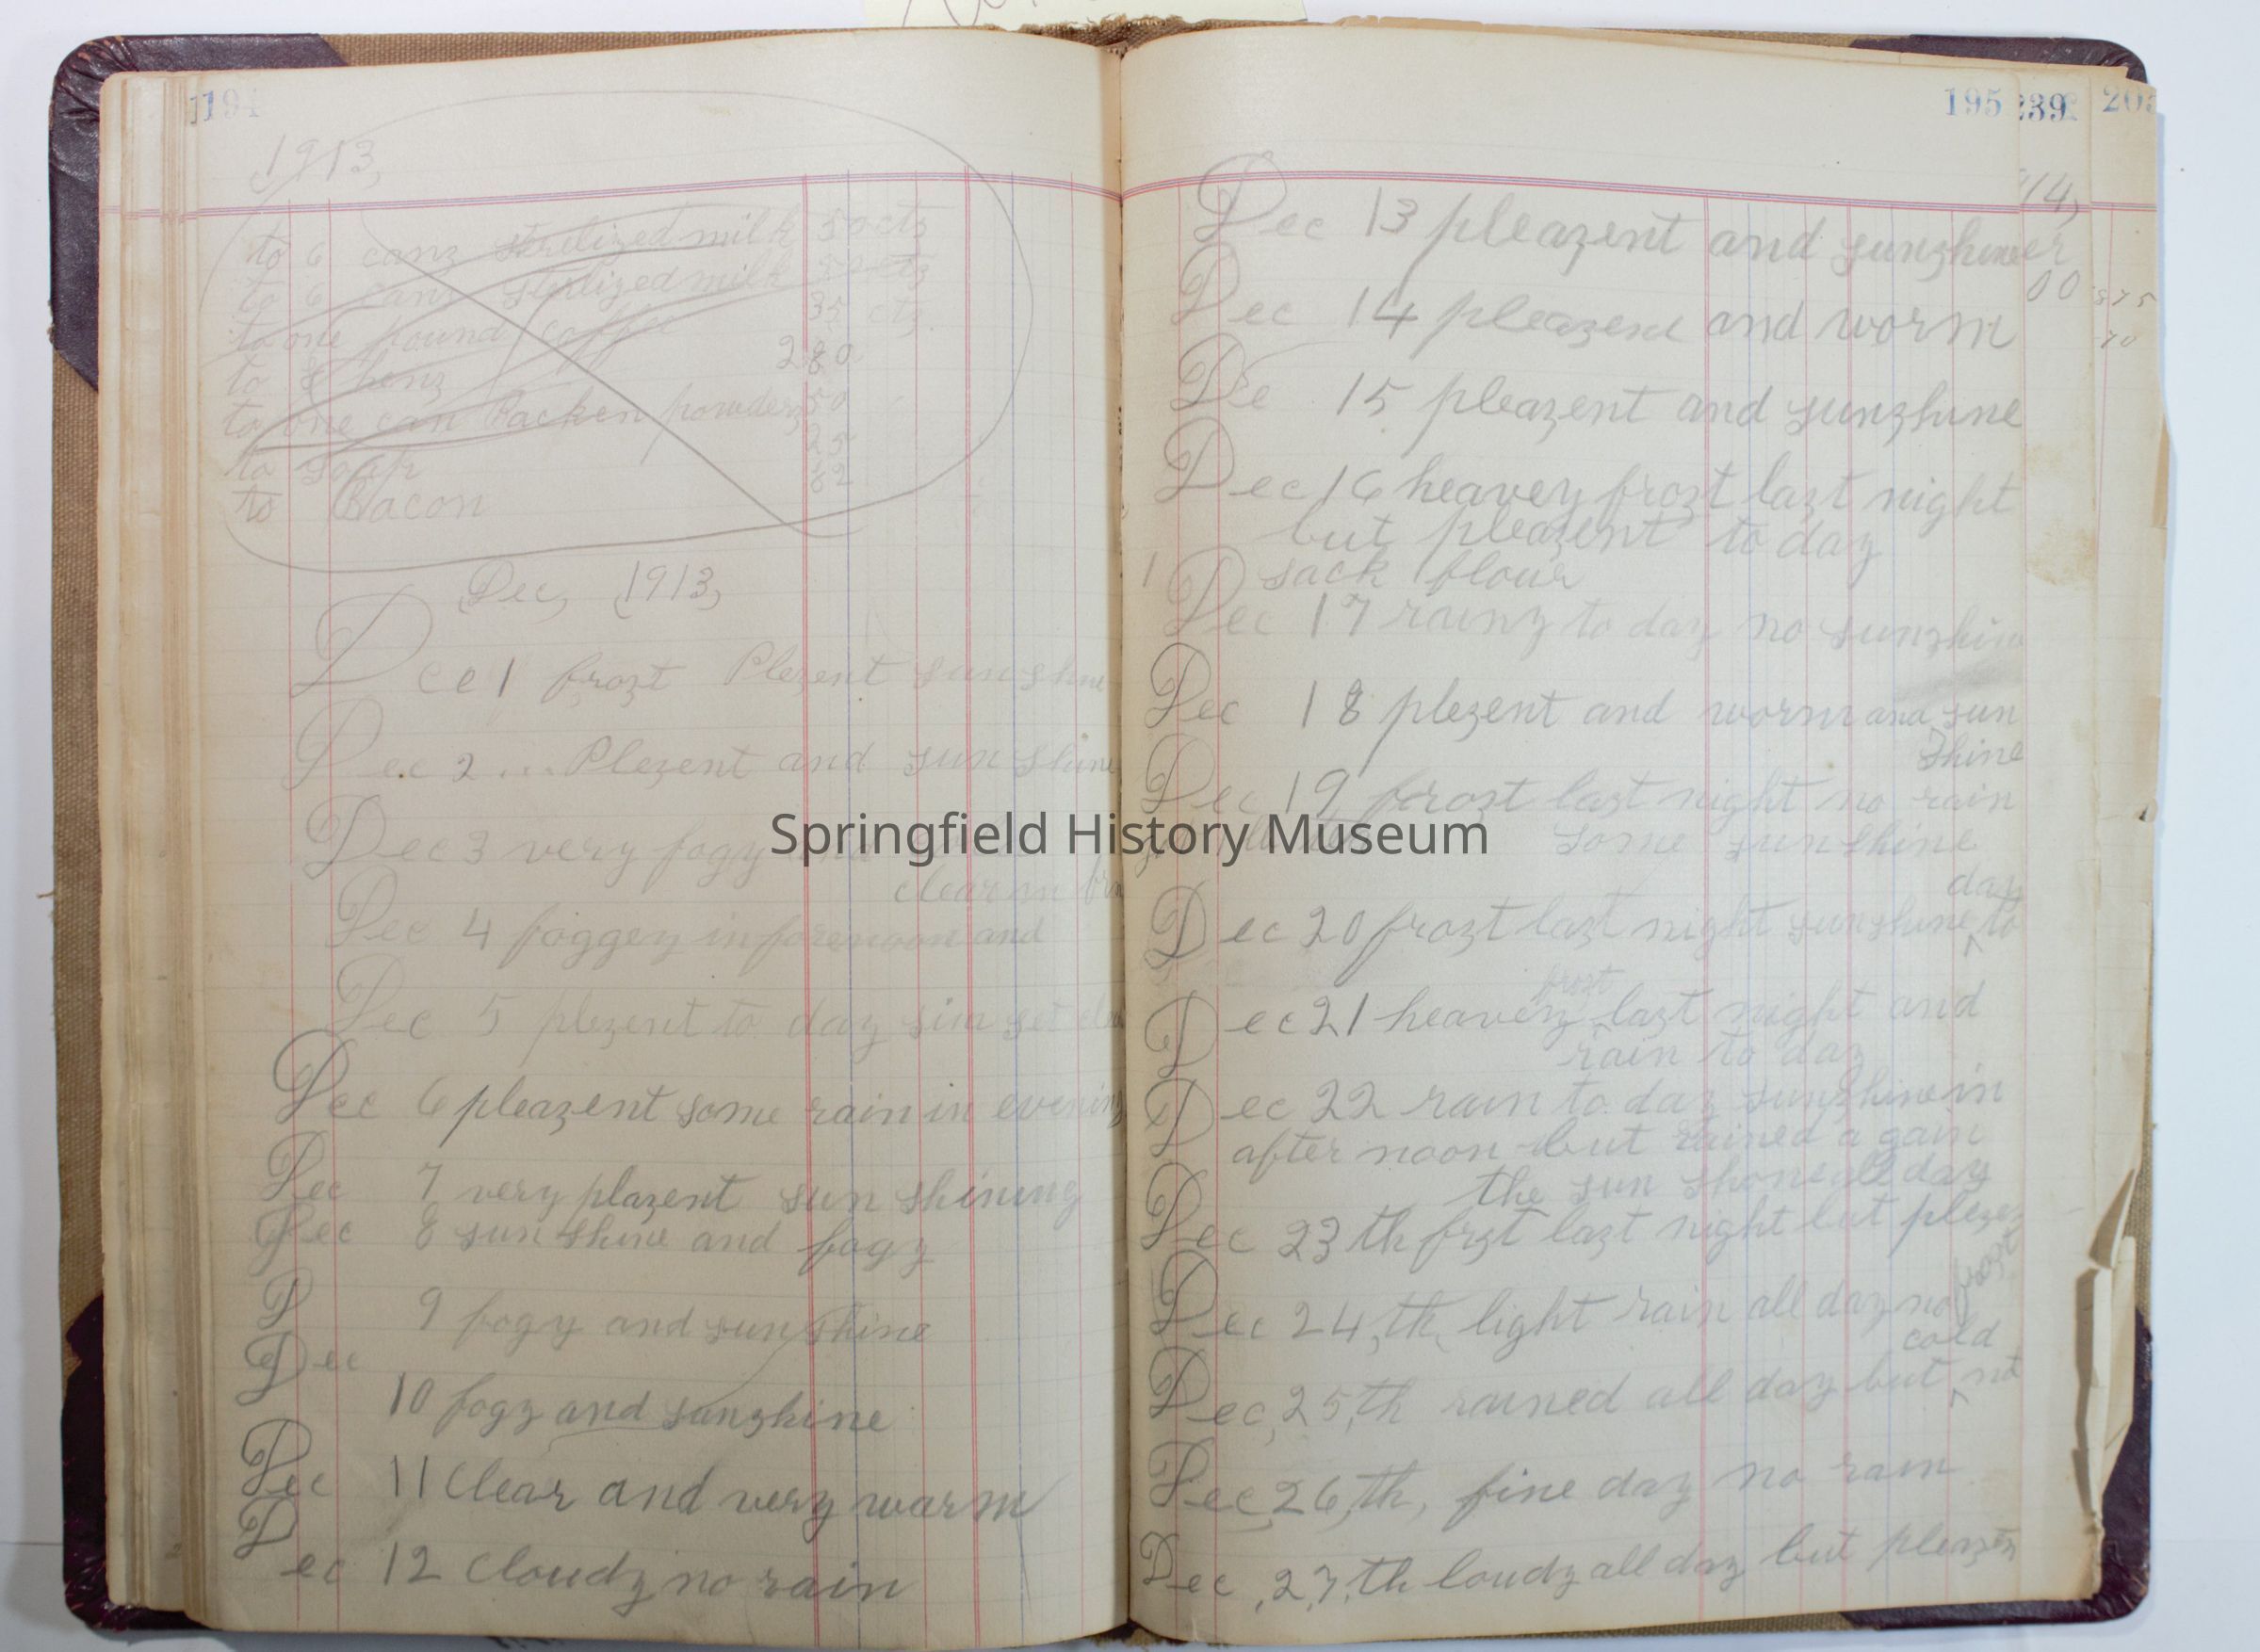 194
1913,
to 6 canz sterilized milk 50 cts
to 6 canz sterilized milk 50 cts
to one pound coffee 35 cts
to 8 henz 280
to one can Backen powder 50
to soap 25
to Bacon 82
Dec, 1913,
Dec 1 frozt Plezent sunshine
Dec 2 ... Plezent and sun shine
Dec 3 very fogy
clear in
Dec 4 foggey in forenoon and
Dec 5 plezent to day sun set
Dec 6 pleazent some rain in evening
Dec 7 very plazent sun shining
Dec 8 sun shine and fogy
D 9 fogy and sunshine
Dec
10 fogy and sunzhine
Dec 11 Clear and very warm
Dec 12 Cloudy no rain
195
Dec 13 pleazent and sunzhine
Dec 14 pleazent and worm
De 15 pleazent and sunzhine
Dec 16 heavey frozt lazt night
but pleazent to day
1 sack flour
Dec 17 rainy to day no sunzhin
Dec 18 plezent and worm and sun
shine
Dec 19 frozt lazt night no rain
some sunshine
day
Dec 20 frozt lazt night sunshine to
frozt
Dec 21 heavey lazt night and
rain to day
Dec 22 rain to day sunzhine in
after noon but rained a gain
the sun shone all day
Dec 23 th frzt lazt night but plezen
frozt
Dec 24, th, light rain all day no
cold
Dec, 25, th rained all day but not
Dec, 26, th, fine day no rain
Dec, 27, th loudy all day but pleazen
239
203
14,
er
00
875
70
Springfield History Museum